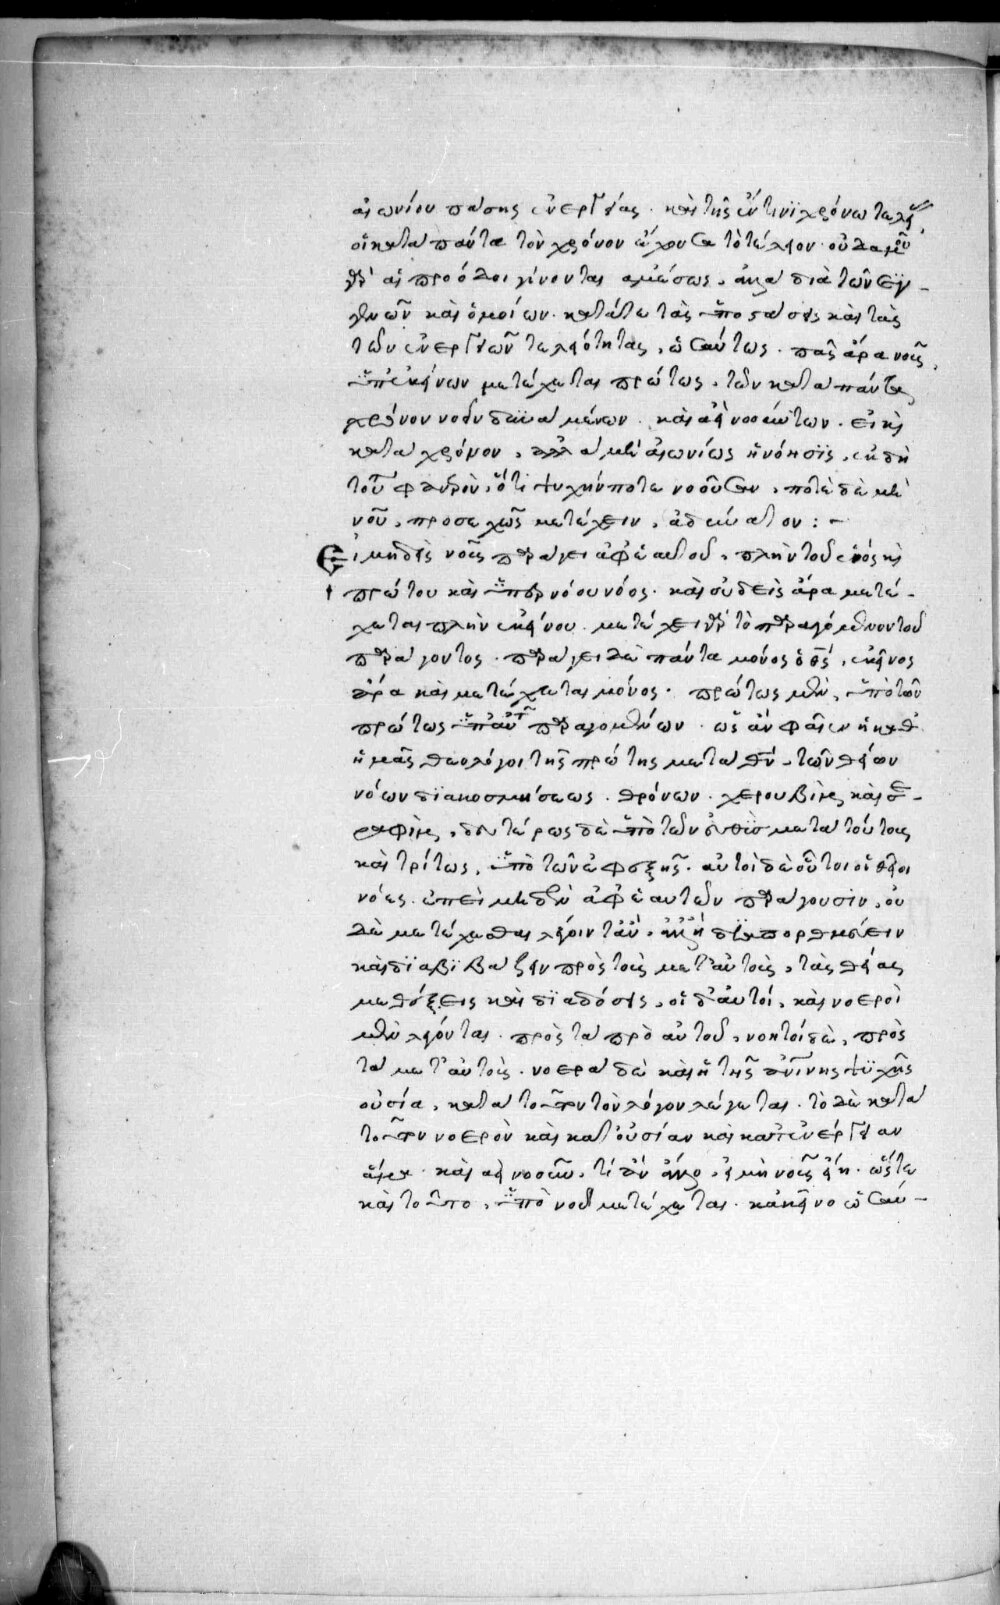 αἰωνίου πάσης ἐνεργείας. καὶ τῆς ἔν τινι χρόνω τελείας
οἱ κατὰ πάντα τὸν χρόνον ἔχουσα τὸ τέλειον. οὐδαμοῦ
γὰρ αἱ πρόοδοι γίνονται ἀμέσως. ἀλλὰ διὰ τῶν συγ-
γενῶν καὶ ὁμοίων. κατά τε τὰς ὑποστάσεις καὶ τὰς
τῶν ἐνεργειῶν τελειότητας, ὡσαύτως. πᾶς ἄρα νοῦς,
ὑπ' ἐκείνων μετέχεται πρώτως. τῶν κατὰ πάντα
χρόνον νοεῖν δυναμένων. καὶ ἀεὶ νοούντων. εἰ καὶ
κατὰ χρόνον. ἀλλὰ μὴ αἰωνίως ἡ νόησις. ἐκ δὴ
τούτου φανερὸν, ὅτι ψυχήν ποτε νοοῦσαν, ποτὲ δὲ μὴ
νοῦ, προσεχῶς μετέχειν, ἀδύνατον :-
Εἰ μηδεὶς νοῦς παράγει ἀφ' ἑαυτοῦ, πλὴν τοῦ ἑνὸς καὶ
πρώτου καὶ ὑπὲρ νόου νόος. καὶ οὐδεὶς ἄρα μετέ-
χεται πλὴν ἐκείνου. μετέχει γὰρ τὸ παραγόμενον τοῦ
παράγοντος. παράγει δὲ πάντα μόνος ὁ θς, ἐκεῖνος
ἄρα καὶ μετέχεται μόνος. πρώτως μὲν, ὑπὸ τῶν
πρώτως ὑπ' αὐτοῦ παραγομένων. ὡς ἂν φαῖεν οἱ καθ'
ἡμᾶς θεολόγοι τῆς πρώτης μετὰ θν, τῶν θείων
νόων διακοσμήσεως. θρόνων. χερουβὶμ καὶ σε-
ραφὶμ, δευτέρως δὲ ὑπὸ τῶν εὐθὺς μετὰ τούτους
καὶ τρίτως, ὑπὸ τῶν ἐφεξῆς. αὐτοὶ δὲ οὗτοι οἱ θεῖοι
νόες. ἐπεὶ μηδὲν ἀφ' ἑαυτῶν παράγουσιν, οὐ
δὲ μετέχεσθαι λέγοιντ' ἄν. ἀλλ' ἢ διαπορθμεύειν
καὶ διαβιβάζειν πρὸς τοὺς μετ' αὐτοὺς, τὰς θείας
μεθέξεις καὶ διαδόσεις. οἱ δ' αὐτοί, καὶ νοεροὶ
μὲν λέγονται. πρὸς τὰ πρὸ αὐτοῦ, νοητοὶ δὲ, πρὸς
τὰ μετ' αὐτοὺς. νοερὰ δὲ καὶ ἡ τῆς ἀνίνης ψυχῆς
οὐσία, κατὰ τοῦτον τὸν λόγον λέγεται. τὸ δὲ κατὰ
τοῦτον νοερὸν καὶ κατ' οὐσίαν καὶ κατ' ἐνέργειαν
ἅμα. καὶ ἀεὶ νοοῦν, τί ἂν ἄλλο, εἰ μὴ νοῦς εἴη. ὥστε
καὶ τοῦτο, ὑπὸ νοῦ μετέχεται. κἀκεῖνο ὡσαύ-